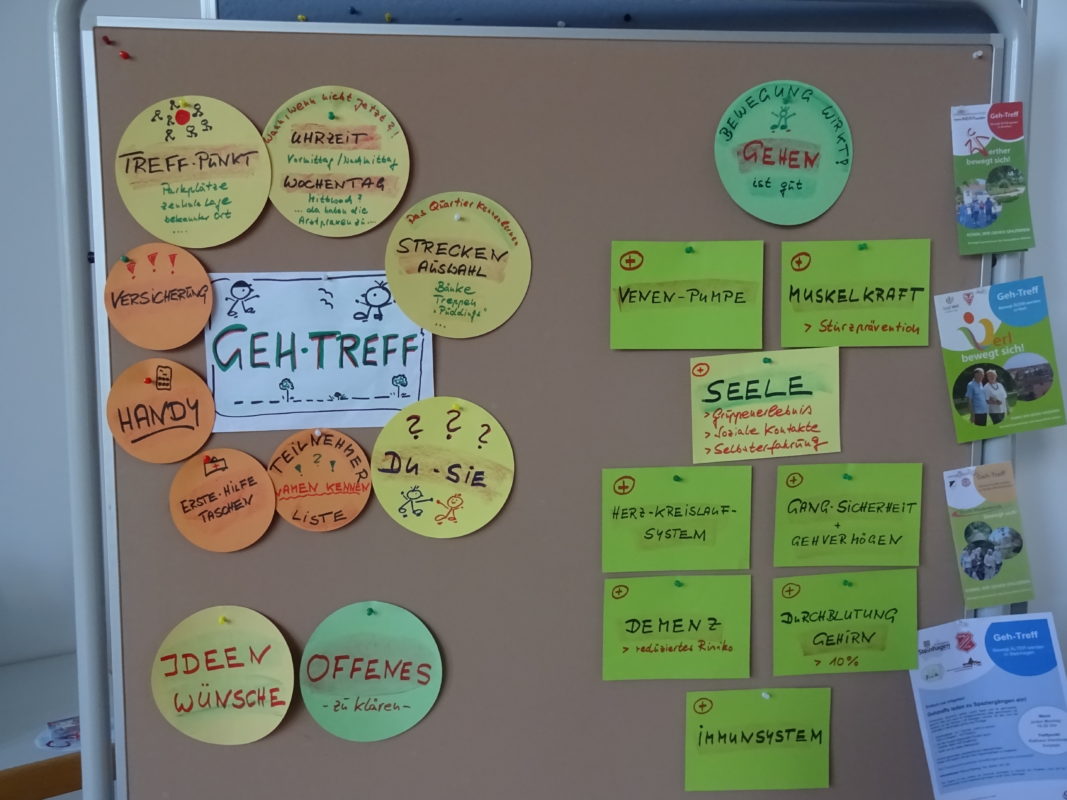 TREFF-PUNKT
Parkplätze
zentrale Lage
bekannter Ort
....
Wann, wenn nicht jetzt?!
UHRZEIT
Vormittag/Nachmittag
WOCHENTAG
Mittwoch?
...da haben die
Arztpraxen zu...
Das Quartier kennenlernen
STRECKEN
AUSWAHL
Bänke
Treppen
"Puddings"
...
!!!
VERSICHERUNG
GEH-TREFF
HANDY
ERSTE-HILFE
TASCHEN
TEILNEHMER
! ? !
NAMEN KENNEN
LISTE
? ? ?
DU-SIE
IDEEN
WÜNSCHE
OFFENES
- zu klären -
BEWEGUNG WIRKT!
GEHEN
ist gut
+
VENEN-PUMPE
+
MUSKELKRAFT
> Sturzprävention
+
SEELE
> Gruppenerlebnis
> Soziale Kontakte
> Selbsterfahrung
+
HERZ-KREISLAUF-
SYSTEM
+
GANG-SICHERHEIT
+
GEHVERMÖGEN
+
DEMENZ
> reduziertes Risiko
+
DURCHBLUTUNG
GEHIRN
> 10%
+
IMMUNSYSTEM
Geh-Treff
erther
bewegt sich!
Geh-Treff
erl
bewegt sich!
Geh-Treff
bewegt sich!
Geh-Treff
Steinhagen